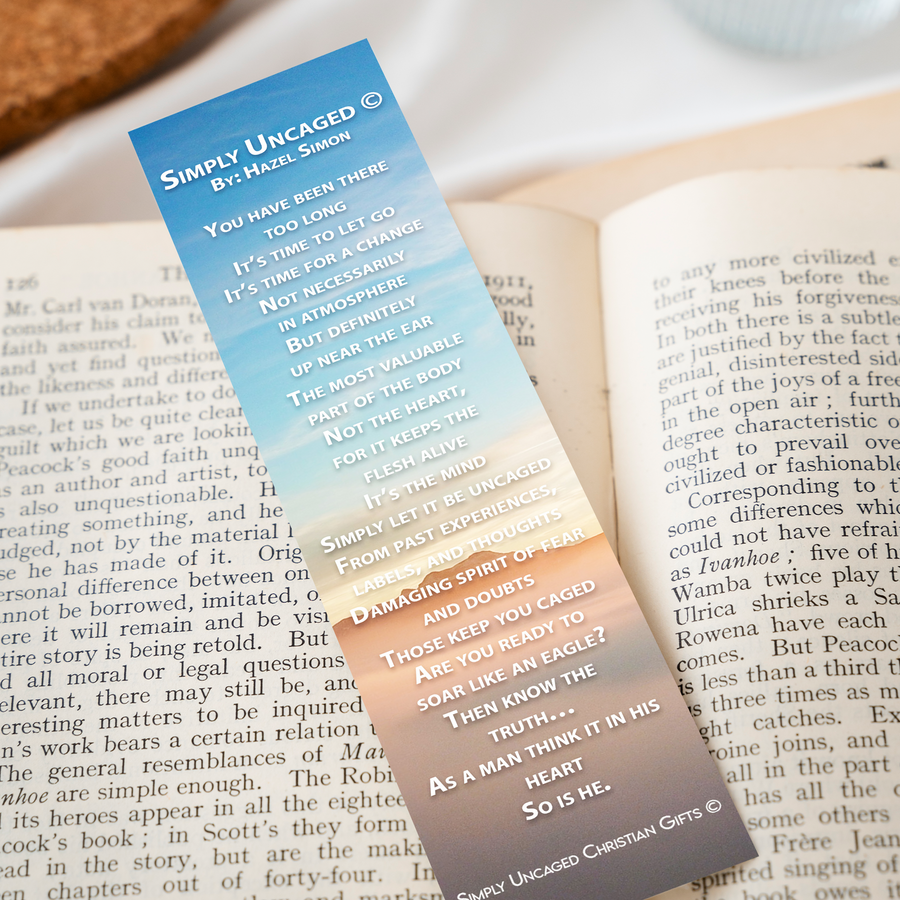 Simply Uncaged ©
By: Hazel Simon
You have been there
too long
It's time to let go
It's time for a change
Not necessarily
in atmosphere
But definitely
up near the ear
The most valuable
part of the body
Not the heart,
for it keeps the
flesh alive
It's the mind
Simply let it be uncaged
From past experiences,
labels, and thoughts
Damaging spirit of fear
and doubts
Those keep you caged
Are you ready to
soar like an eagle?
Then know the
truth...
As a man think it in his
heart
So is he.
Simply Uncaged Christian Gifts ©
126
Mr. Carl van Doran,
consider his claim
faith assured. We
and yet find question
the likeness and
If we undertake to do
case, let us be quite clear
guilt which we are
Peacock's good faith
as an author and artist, to
also unquestionable.
creating something, and he
judged, not by the material
he has made of it.
personal difference between
cannot be borrowed, imitated,
it will remain and be
entire story is being retold. But
all moral or legal questions
relevant, there may still be, and
interesting matters to be inquired
work bears a certain relation
The general resemblances of
are simple enough. The
its heroes appear in all the
book ; in Scott's they form
in the story, but are the
chapters out of forty-four. In
1911,
good
in
to any more civilized
their knees before the
receiving his forgiveness
In both there is a subtle
are justified by the fact
genial, disinterested
part of the joys of a free
in the open air ;
degree characteristic
ought to prevail
civilized or fashionable
Corresponding to
some differences
could not have
as Ivanhoe ; five of
Wamba twice play
Ulrica shrieks a
Rowena have each
comes. But Peacock
is less than a third
three times as
catches.
joins, and
all in the part
has all the
some others
Frère Jean
spirited singing of
book owes